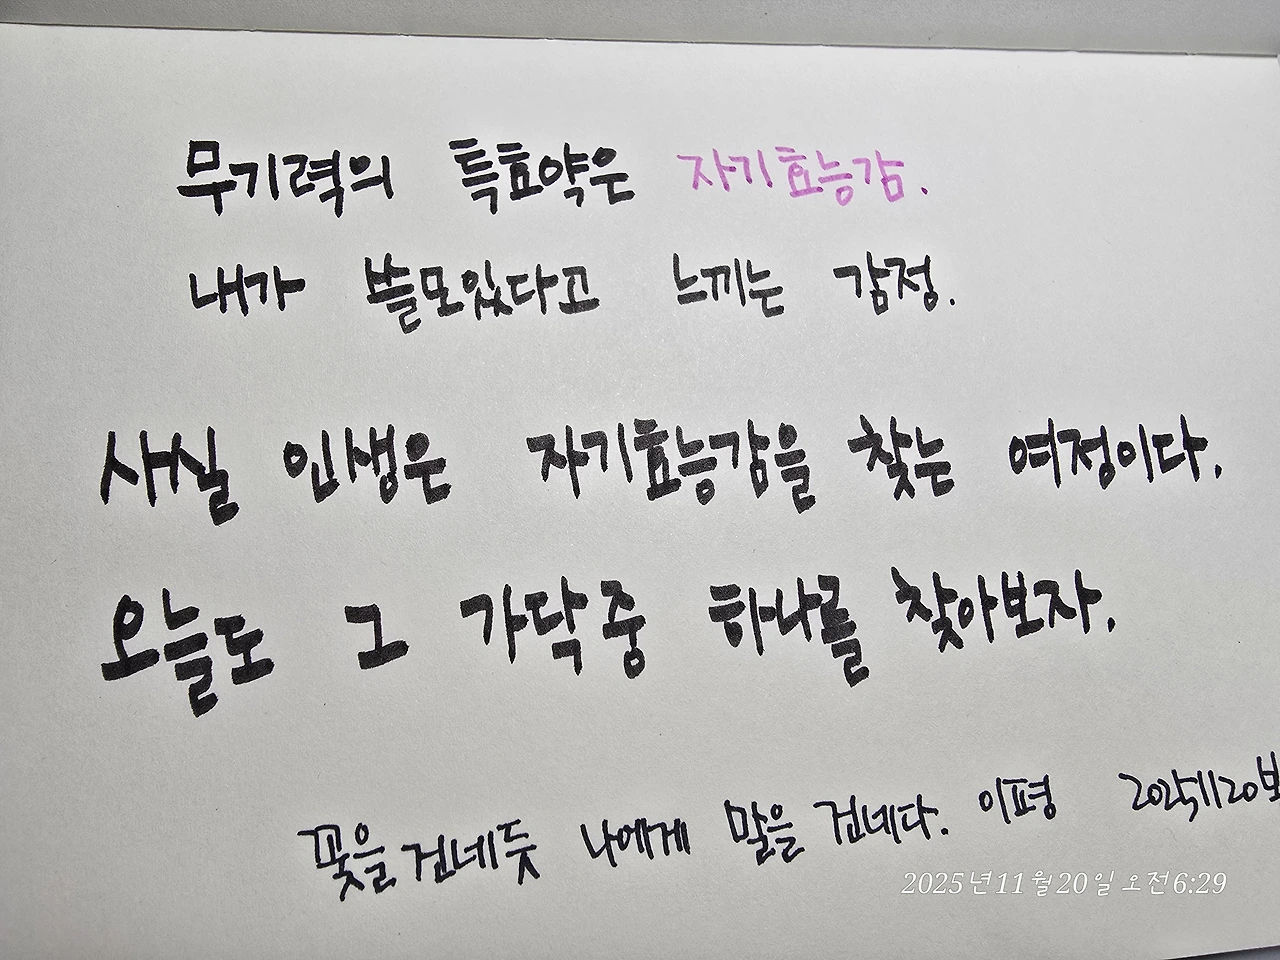 무기력의 특효약은 자기효능감.
내가 쓸모있다고 느끼는 감정.
사실 인생은 자기효능감을 찾는 여정이다.
오늘도 그 가닥중 하나를 찾아보자.
꽃을 건네듯 나에게 말을 건네다. 이평 20251120보
2025년11월20일 오전6:29